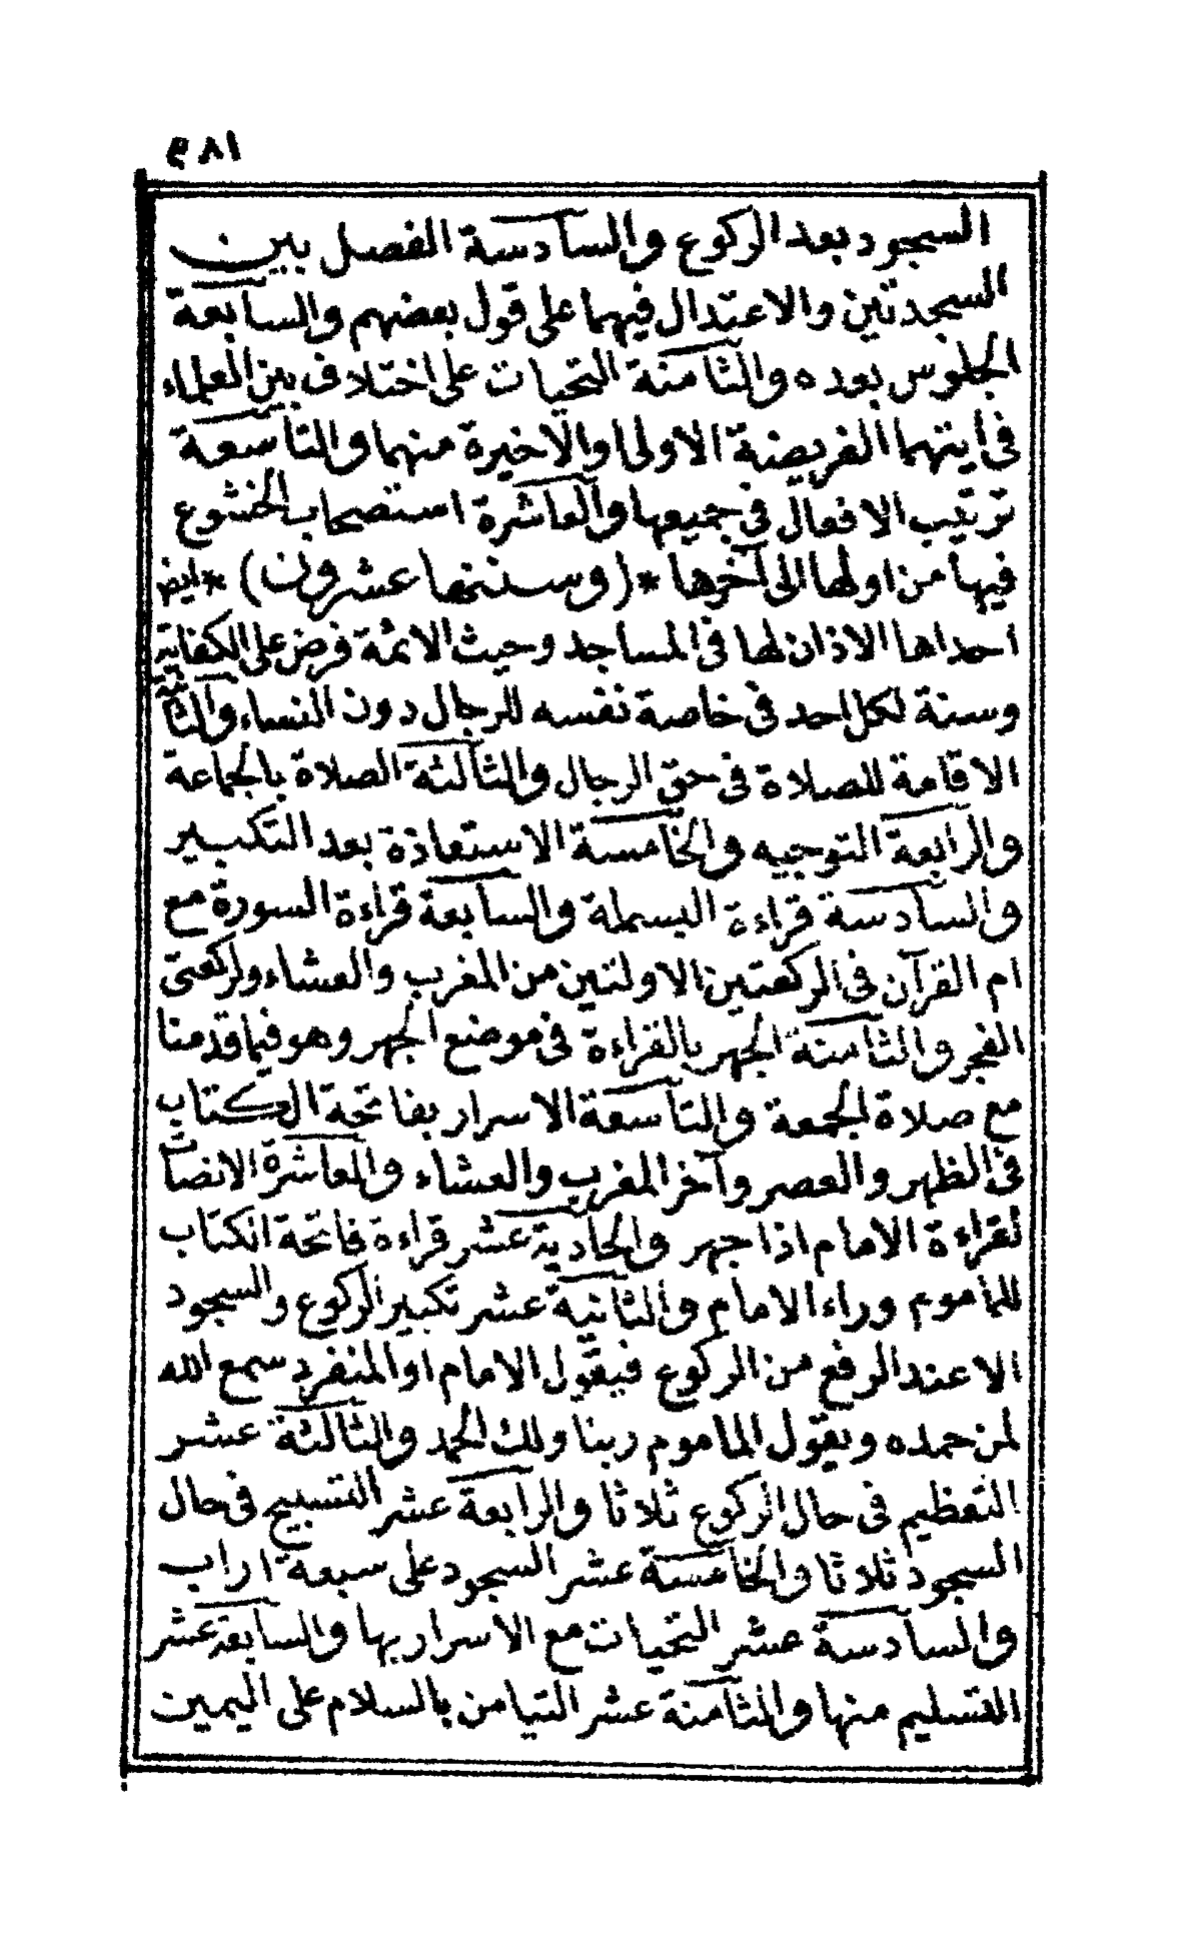 السجود بعد الركوع والسادسة الفصل بين
السجدتين والاعتدال فيهما على قول بعضهم والسابعة
الجلوس بعده والثامنة التحيات على اختلاف بين العلماء
فى ايتهما الفريضة الاولى او الاخيرة منهما والتاسعة
ترتيب الافعال فى جميعها والعاشرة استصحاب الخشوع
فيها من اولها الى آخرها * (وسننها عشرون) * ايضا
احداها الاذان لها فى المساجد وحيث الائمة فرض على الكفاية
وسنة لكل احد فى خاصة نفسه للرجال دون النساء والثانية
الاقامة للصلاة فى حق الرجال والثالثة الصلاة بالجماعة
والرابعة التوجيه والخامسة الاستعاذة بعد التكبير
والسادسة قراءة البسملة والسابعة قراءة السورة مع
ام القرآن فى الركعتين الاولتين من المغرب والعشاء ولركعتى
الفجر والثامنة الجهر بالقراءة فى موضع الجهر وهو فيما قدمنا
مع صلاة الجمعة والتاسعة الاسرار بفاتحة الكتاب
فى الظهر والعصر وآخر المغرب والعشاء والعاشرة الانصات
لقراءة الامام اذا جهر والحادية عشر قراءة فاتحة الكتاب
للماموم وراء الامام والثانية عشر تكبير الركوع والسجود
الا عند الرفع من الركوع فيقول الامام او المنفرد سمع الله
لمن حمده ويقول الماموم ربنا ولك الحمد والثالثة عشر
التعظيم فى حال الركوع ثلاثا والرابعة عشر التسبيح فى حال
السجود ثلاثا والخامسة عشر السجود على سبعة اراب
والسادسة عشر التحيات مع الاسرار بها والسابعة عشر
التسليم منها والثامنة عشر التيامن بالسلام على اليمين